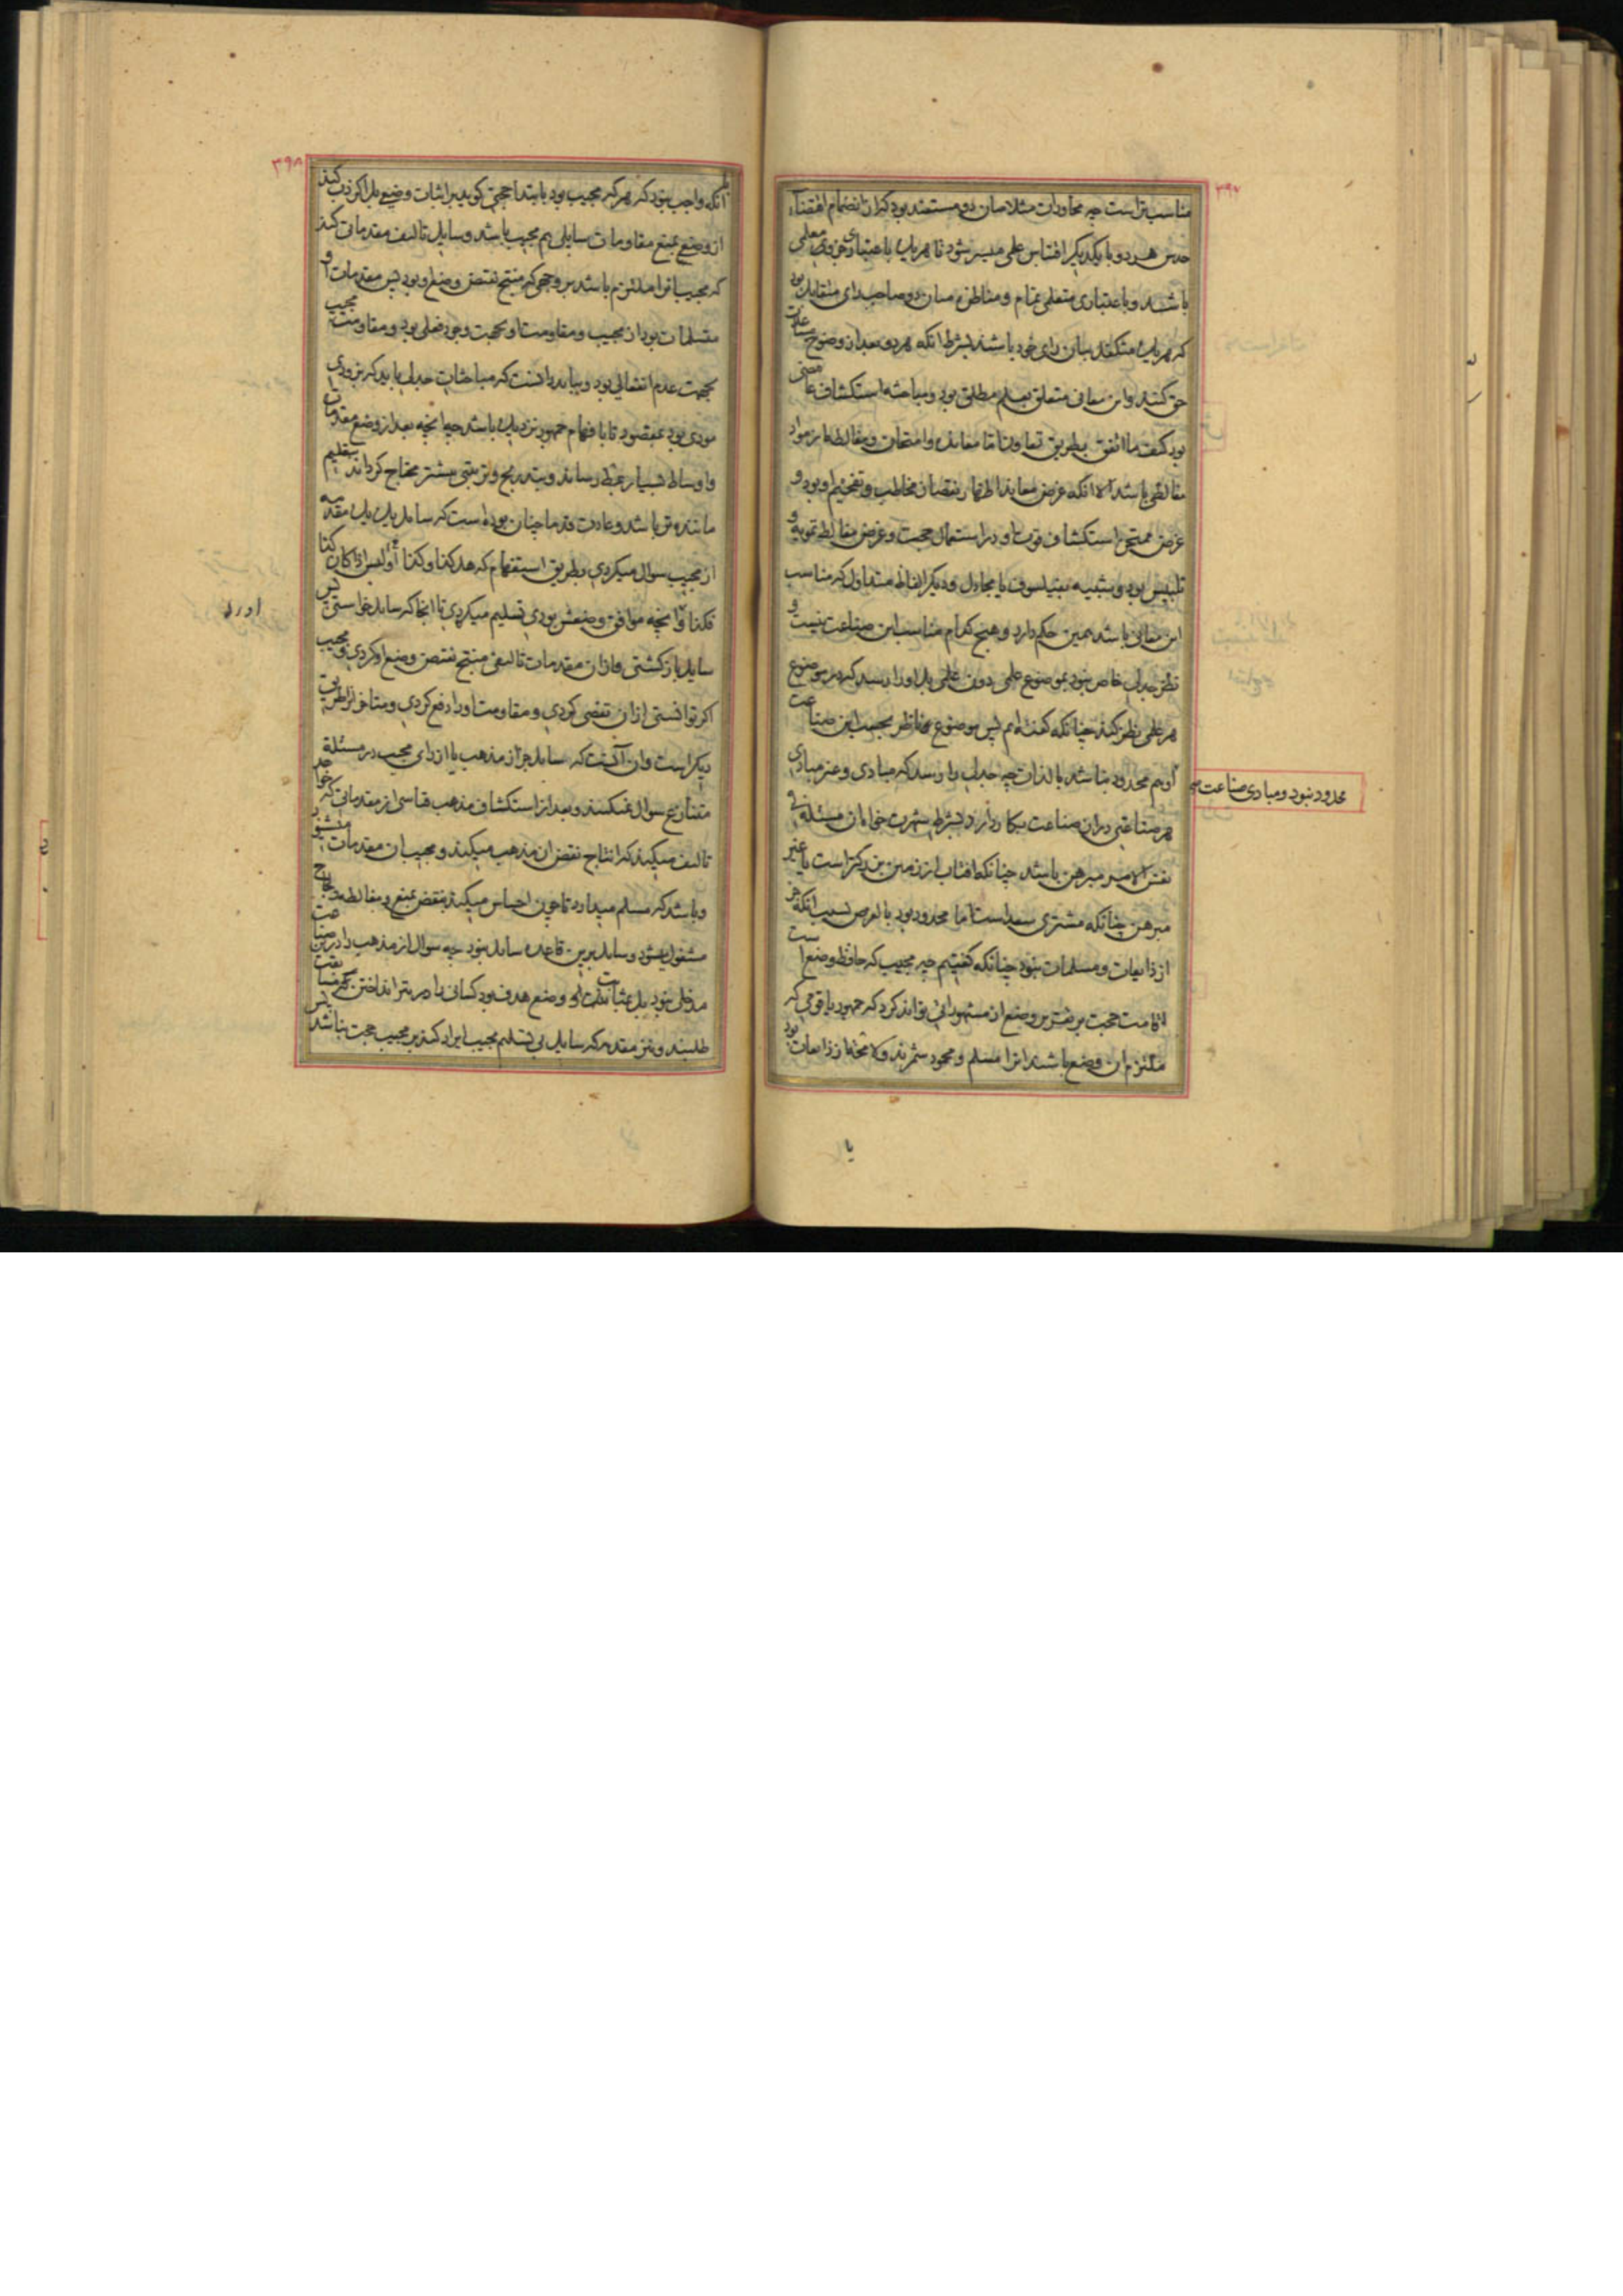 ۳۹۷
مناسب‌تر است چه محاورات مثلا میان دو مستفید بود که از انضمام اقتضاء
حدس هر دو با یکدیگر اقتباس علمی میسر شود تا هر یک باعتباری جزوی معلمی
باشند و باعتباری متعلمی تمام و مناظره میان دو صاحب رای متقابل بود
که هر یک متکفل بیان رای خود باشند بشرط آنکه هر دو بعد از وضوح مساعدت
حق کنند و این معانی متعلق بعلم مطلق بود و مباحثه استکشاف غامضی
بود کیف ما اتفق بطریق تعاون اما معانده و امتحان و مغالطه از مواد
مغالطی باشد الا آنکه غرض معاند اظهار نقصان مخاطب و تعجیز او بود و
غرض ممتحن استکشاف قوت او در استعمال حجت و غرض مغالط تمویه و
تلبیس بود و تشبیه بفیلسوف یا مجادل و دیگر الفاظ متداول که مناسب
این معانی باشد همین حکم دارد و هیچ کدام مناسب این صناعت نیست و
نظر جدلی خاص نبود بموضوع علمی دون علمی بل او را رسد که در موضوع
هر علمی نظر کند چنانکه گفته‌ایم پس موضوع مناظر بحسب این صناعت
محدود نبود و مبادی صناعت
او هم محدود نباشد بالذات چه جدلی را رسد که مبادی و غیر مبادی
هر صناعتی در آن صناعت بکار دارد بشرط شهرت خواه آن مسئله فی
نفس الامر مبرهن باشد چنانکه آفتاب از زمین بزرگتر است یا غیر
مبرهن چنانکه مشتری سعد است اما محدود بود بالعرض بسبب آنکه جز
از ذایعات و مسلمات نبود چنانکه گفتیم چه مجیب که حافظ وضع است
اقامت حجت بر تقریر وضع از مشهوراتی تواند کرد که جمهور یا قومی که
ملتزم آن وضع باشند آنرا مسلم و محمود شمرند و لا محاله از ذایعات بود
با
۳۹۸
آنکه واجب بود که هر که مجیب بود بابتدا حجتی گوید بر اثبات وضعی بل اگر ذب کند
از وضع بمنع مقاومات سایلی هم مجیب باشد و سایل تالیف مقدماتی کند
که مجیب آنرا ملتزم باشد بر وجهی که منتج نقیض وضع او بود پس مقدمات او
متسلمات بود از مجیب و مقاومت او بحجت وجود فعلی بود و مقاومت مجیب
بجهت عدم انفعالی بود و بباید دانست که مباحثات جدلی باید که بزودی
مودی بود بمقصود تا بافهام جمهور نزدیک باشد چه آنچه بعد از وضع مقدمات
و اوساط بسیار بمطلوب رساند و بتدریج و ترتیبی بیشتر محتاج گرداند بتعلیم
مانندتر باشد و عادت قدما چنان بوده است که سایل یک یک مقدمه
از مجیب سوال میکردی بطریق استفهام که هل کذا و کذا او الیس اذا کان کذا
فکذا و آنچه موافق وضعش بودی تسلیم میکردی تا آنجا که سایل خواستی پس
سایل بازگشتی و از آن مقدمات تالیفی منتج نقیض وضع او کردی و مجیب
اگر توانستی از آن تفصی کردی و مقاومت او را دفع کردی و متاخرانرا طریقی
دیگر است و آن آنست که سایل جز از مذهب یا از رای مجیب در مسئله
متنازع سوال نمیکند و بعد از استکشاف مذهب قیاسی از مقدماتی که خواهد
تالیف میکند که انتاج نقیض آن مذهب میکند و مجیب آن مقدمات می‌شنود
و باشد که مسلم میدارد تا چون احساس میکند بنقض بمنع و مغالطه و لجاج
مشغول میشود و سایل برین قاعده سایل نبود چه سوال از مذهب را در صناعت
مدخلی نبود بل بمثابت وضع هدف بود کسانی را در تیر انداختن که مسابقت
طلبند و نیز مقدمه که سایل بی تسلیم مجیب ایراد کند بر مجیب حجت نباشد پس
اورد